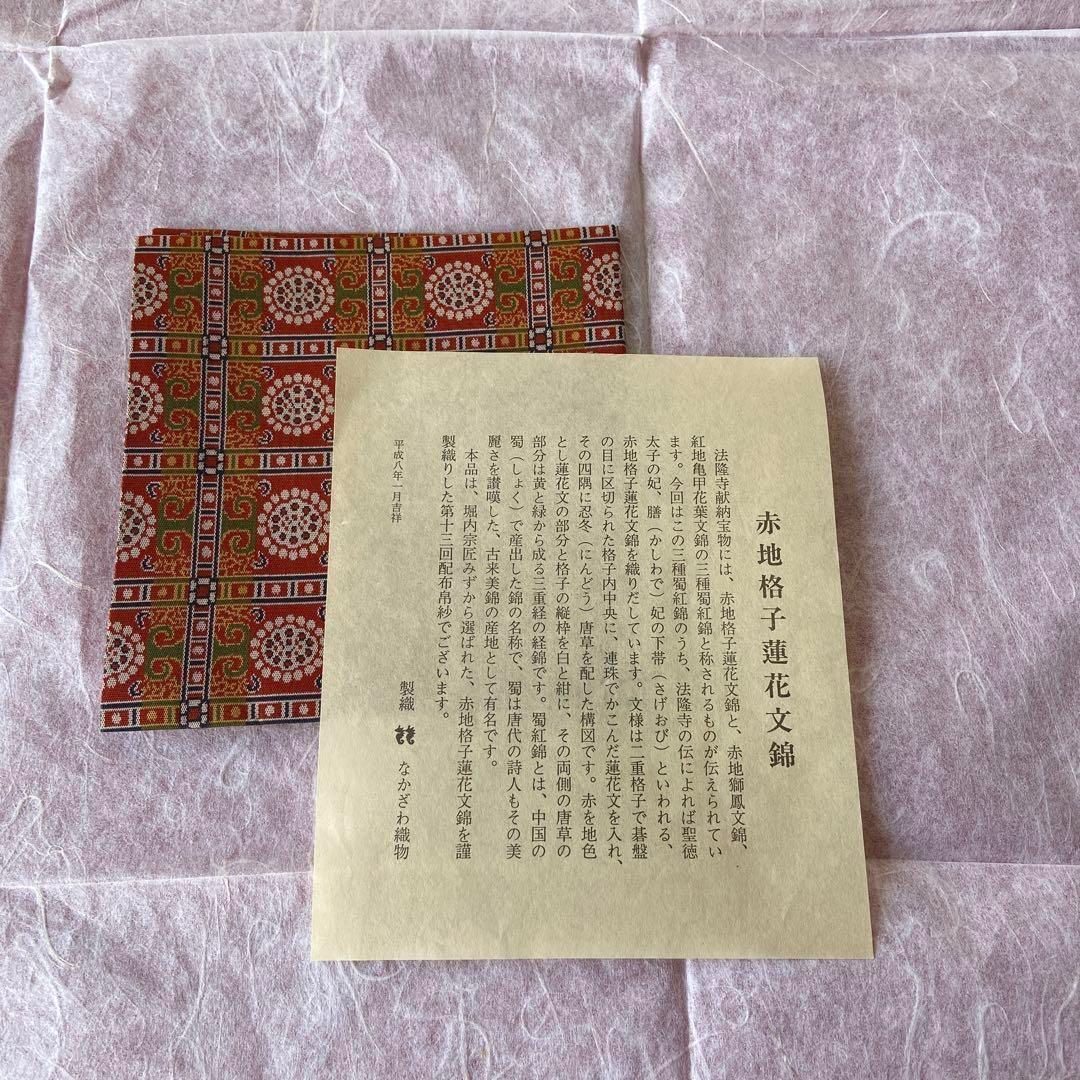 赤地格子蓮花文錦
法隆寺献納宝物には、赤地格子蓮花文錦と、赤地獅鳳文錦、
紅地亀甲花葉文錦の三種蜀紅錦と称されるものが伝えられてい
ます。今回はこの三種蜀紅錦のうち、法隆寺の伝によれば聖徳
太子の妃、膳（かしわで）妃の下帯（さげおび）といわれる、
赤地格子蓮花文錦を織りだしています。文様は二重格子で碁盤
の目に区切られた格子内中央に、連珠でかこんだ蓮花文を入れ、
その四隅に忍冬（にんどう）唐草を配した構図です。赤を地色
とし蓮花文の部分と格子の縦枠を白と紺に、その両側の唐草の
部分は黄と緑から成る三重経の経錦です。蜀紅錦とは、中国の
蜀（しょく）で産出した錦の名称で、蜀は唐代の詩人もその美
麗さを讃嘆した、古来美錦の産地として有名です。
本品は、堀内宗匠みずから選ばれた、赤地格子蓮花文錦を謹
製織りした第十三回配布帛紗でございます。
製織 なかざわ織物
平成八年一月吉祥